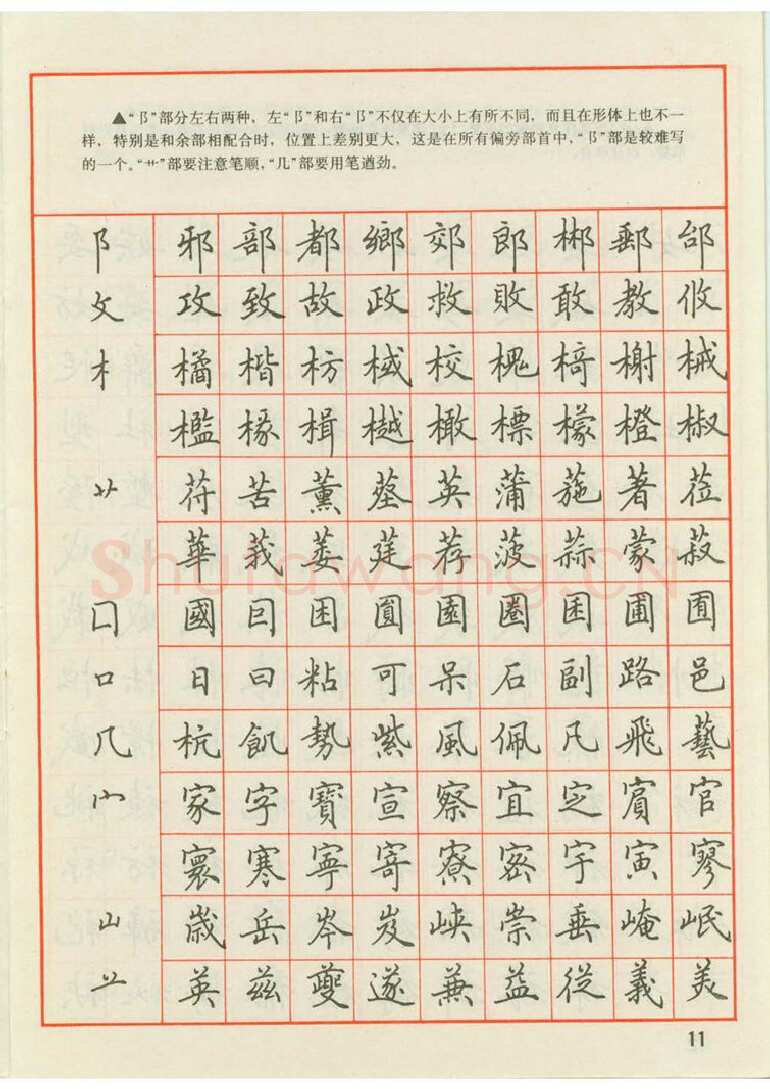 ▲“阝”部分左右两种，左“阝”和右“阝”不仅在大小上有所不同，而且在形体上也不一
样，特别是和余部相配合时，位置上差别更大，这是在所有偏旁部首中，“阝”部是较难写
的一个。“艹”部要注意笔顺，“几”部要用笔遒劲。
阝 邪 部 都 鄉 郊 郎 郴 郵 邰
攵 攻 致 故 政 救 敗 敢 教 攸
木 橘 楷 枋 棫 校 槐 椅 榭 械
檻 椽 楫 樾 橄 標 檬 橙 椒
艹 苻 苦 薰 英 蒲 葹 著 莅
華 莪 萎 莛 荐 菠 蒜 蒙 菽
囗 國 回 困 圓 園 圈 困 圃
口 日 曰 粘 可 呆 石 副 路 邑
几 杭 飢 勢 紫 風 佩 凡 飛 藝
宀 家 字 寶 宣 察 宜 定 賓 官
寰 寒 寧 寄 寮 密 宇 寅 寥
山 歲 岳 岑 岌 峡 崇 垂 崦 岷
䒑 英 兹 夔 遂 兼 益 從 義 美
Shufawang.cn
11